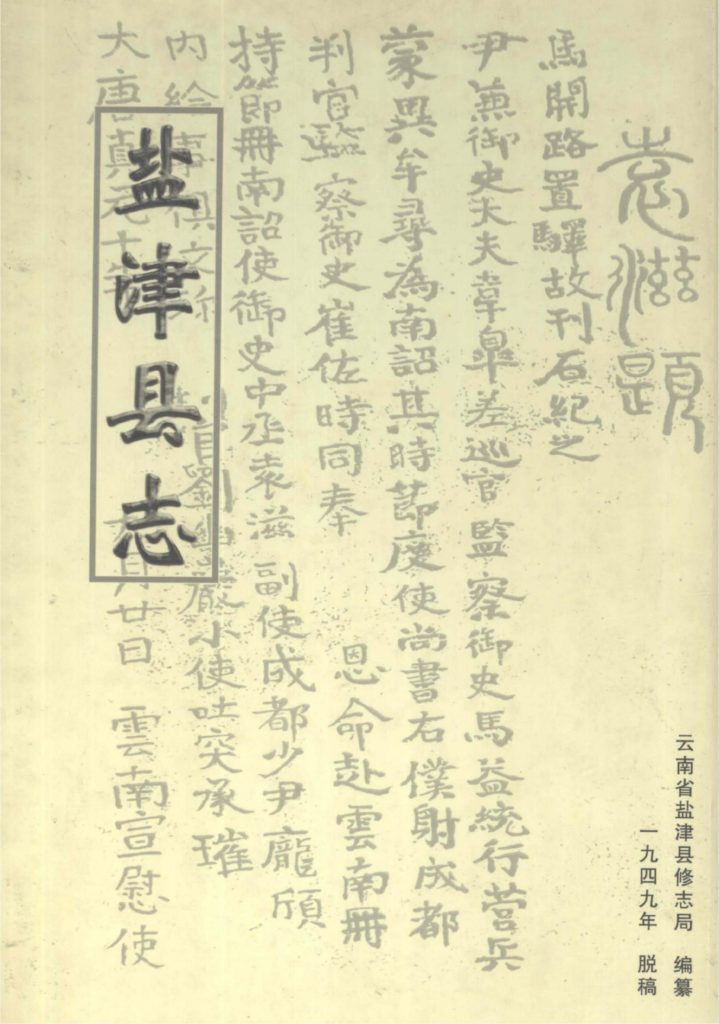 盐津县志
大唐貞元十年 月廿日 雲南宣慰使
内給事俱文珎 官劉幽巖小使吐突承璀
持節冊南詔使御史中丞袁滋 副使成都少尹龐頎
判官監察御史崔佐時同奉 恩命赴雲南冊
蒙異牟尋為南詔其時節度使尚書右僕射成都
尹兼御史大夫韋皐差巡官監察御史馬益統行營兵
馬開路置驛故刊石紀之
袁滋題
云南省盐津县修志局 编纂
一九四九年 脱稿